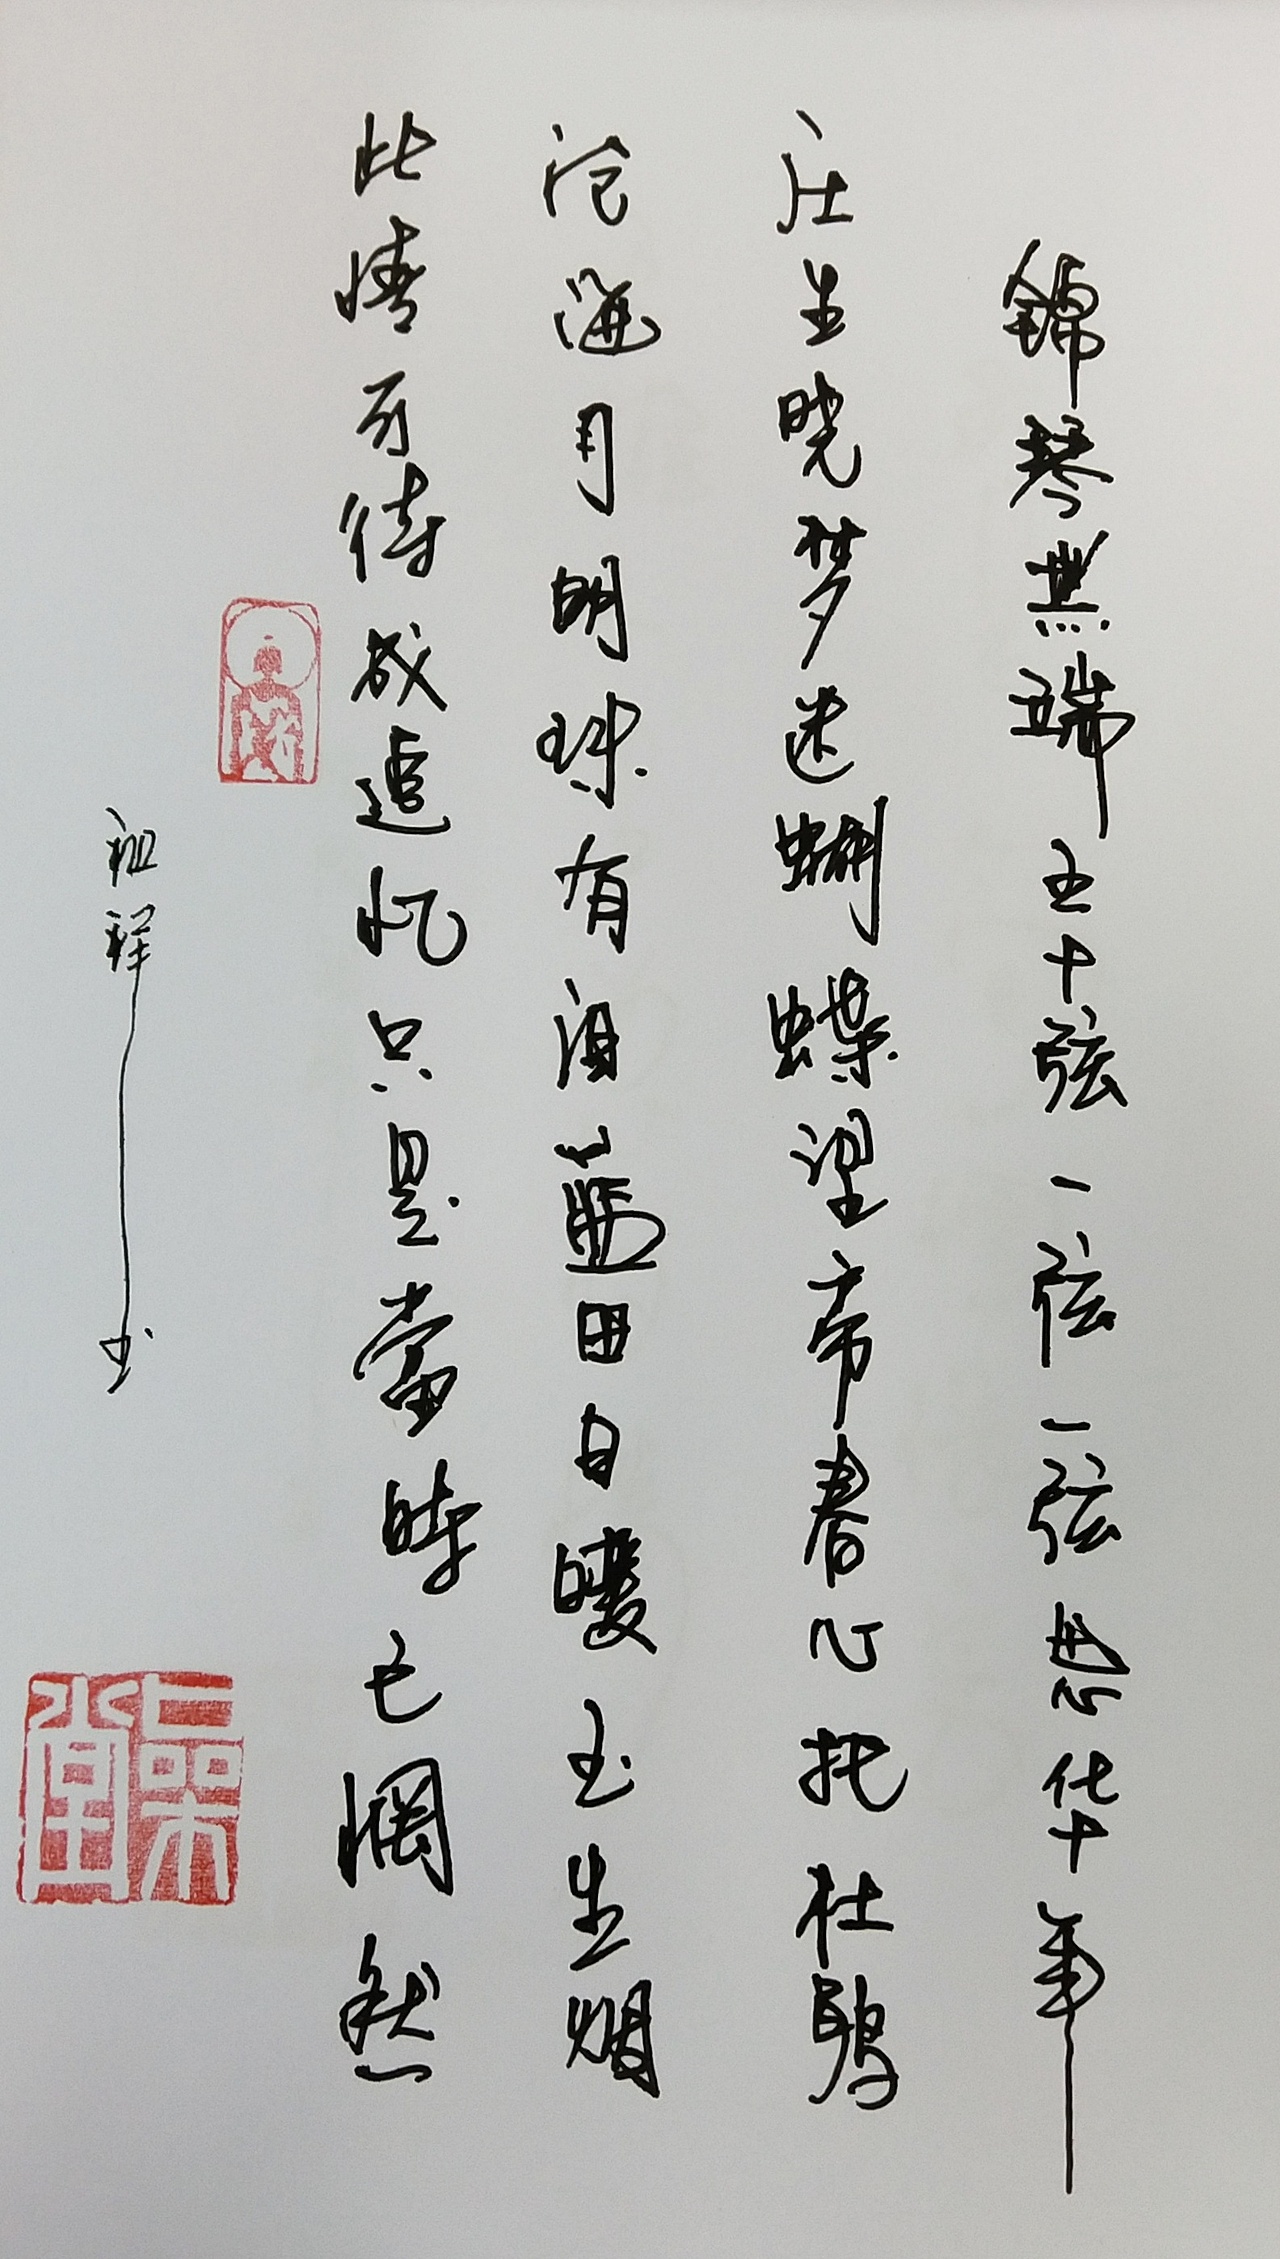 錦琴無端五十弦一弦一弦思华年
庄生晓梦迷蝴蝶望帝春心托杜鹃
沧海月明珠有泪藍田日暖玉生烟
此情可待成追忆只是當時已惘然
祖祥书